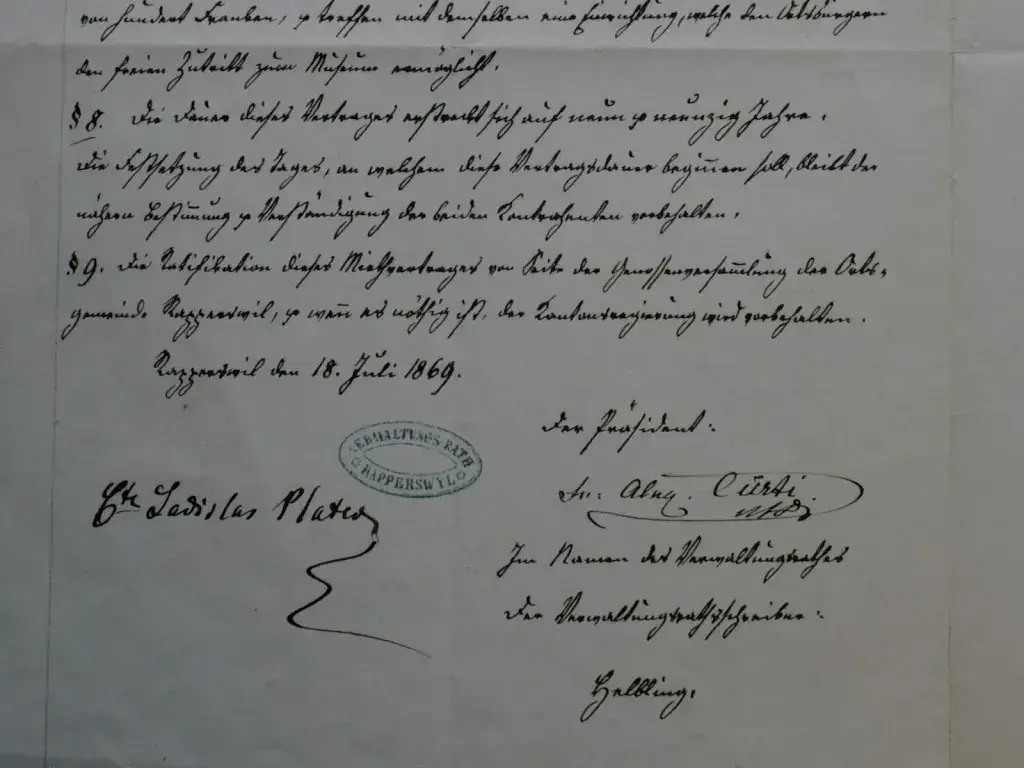 von hundert Franken, & treffen mit demselben eine Einrichtung, welche den Ortsbürgern
den freien Zutritt zum Museum ermöglicht.
§ 8. Die Dauer dieses Vertrages erstreckt sich auf neun & neunzig Jahre.
Die Festsetzung des Tages, an welchem diese Vertragsdauer beginnen soll, bleibt der
nähern Bestimmung & Verständigung der beiden Kontrahenten vorbehalten.
§ 9. Die Ratifikation dieses Miethvertrages von Seite der Genossenversammlung der Orts-
gemeinde Rapperswil, & wenn es nöthig ist, der Kantonsregierung wird vorbehalten.
Rapperswil den 18. Juli 1869.
Der Präsident:
VERWALTUNGS-RATH
RAPPERSWYL
Cte Ladislas Plater
Curti
Im Namen des Verwaltungsrathes
Der Verwaltungsrathsschreiber:
Helbling.